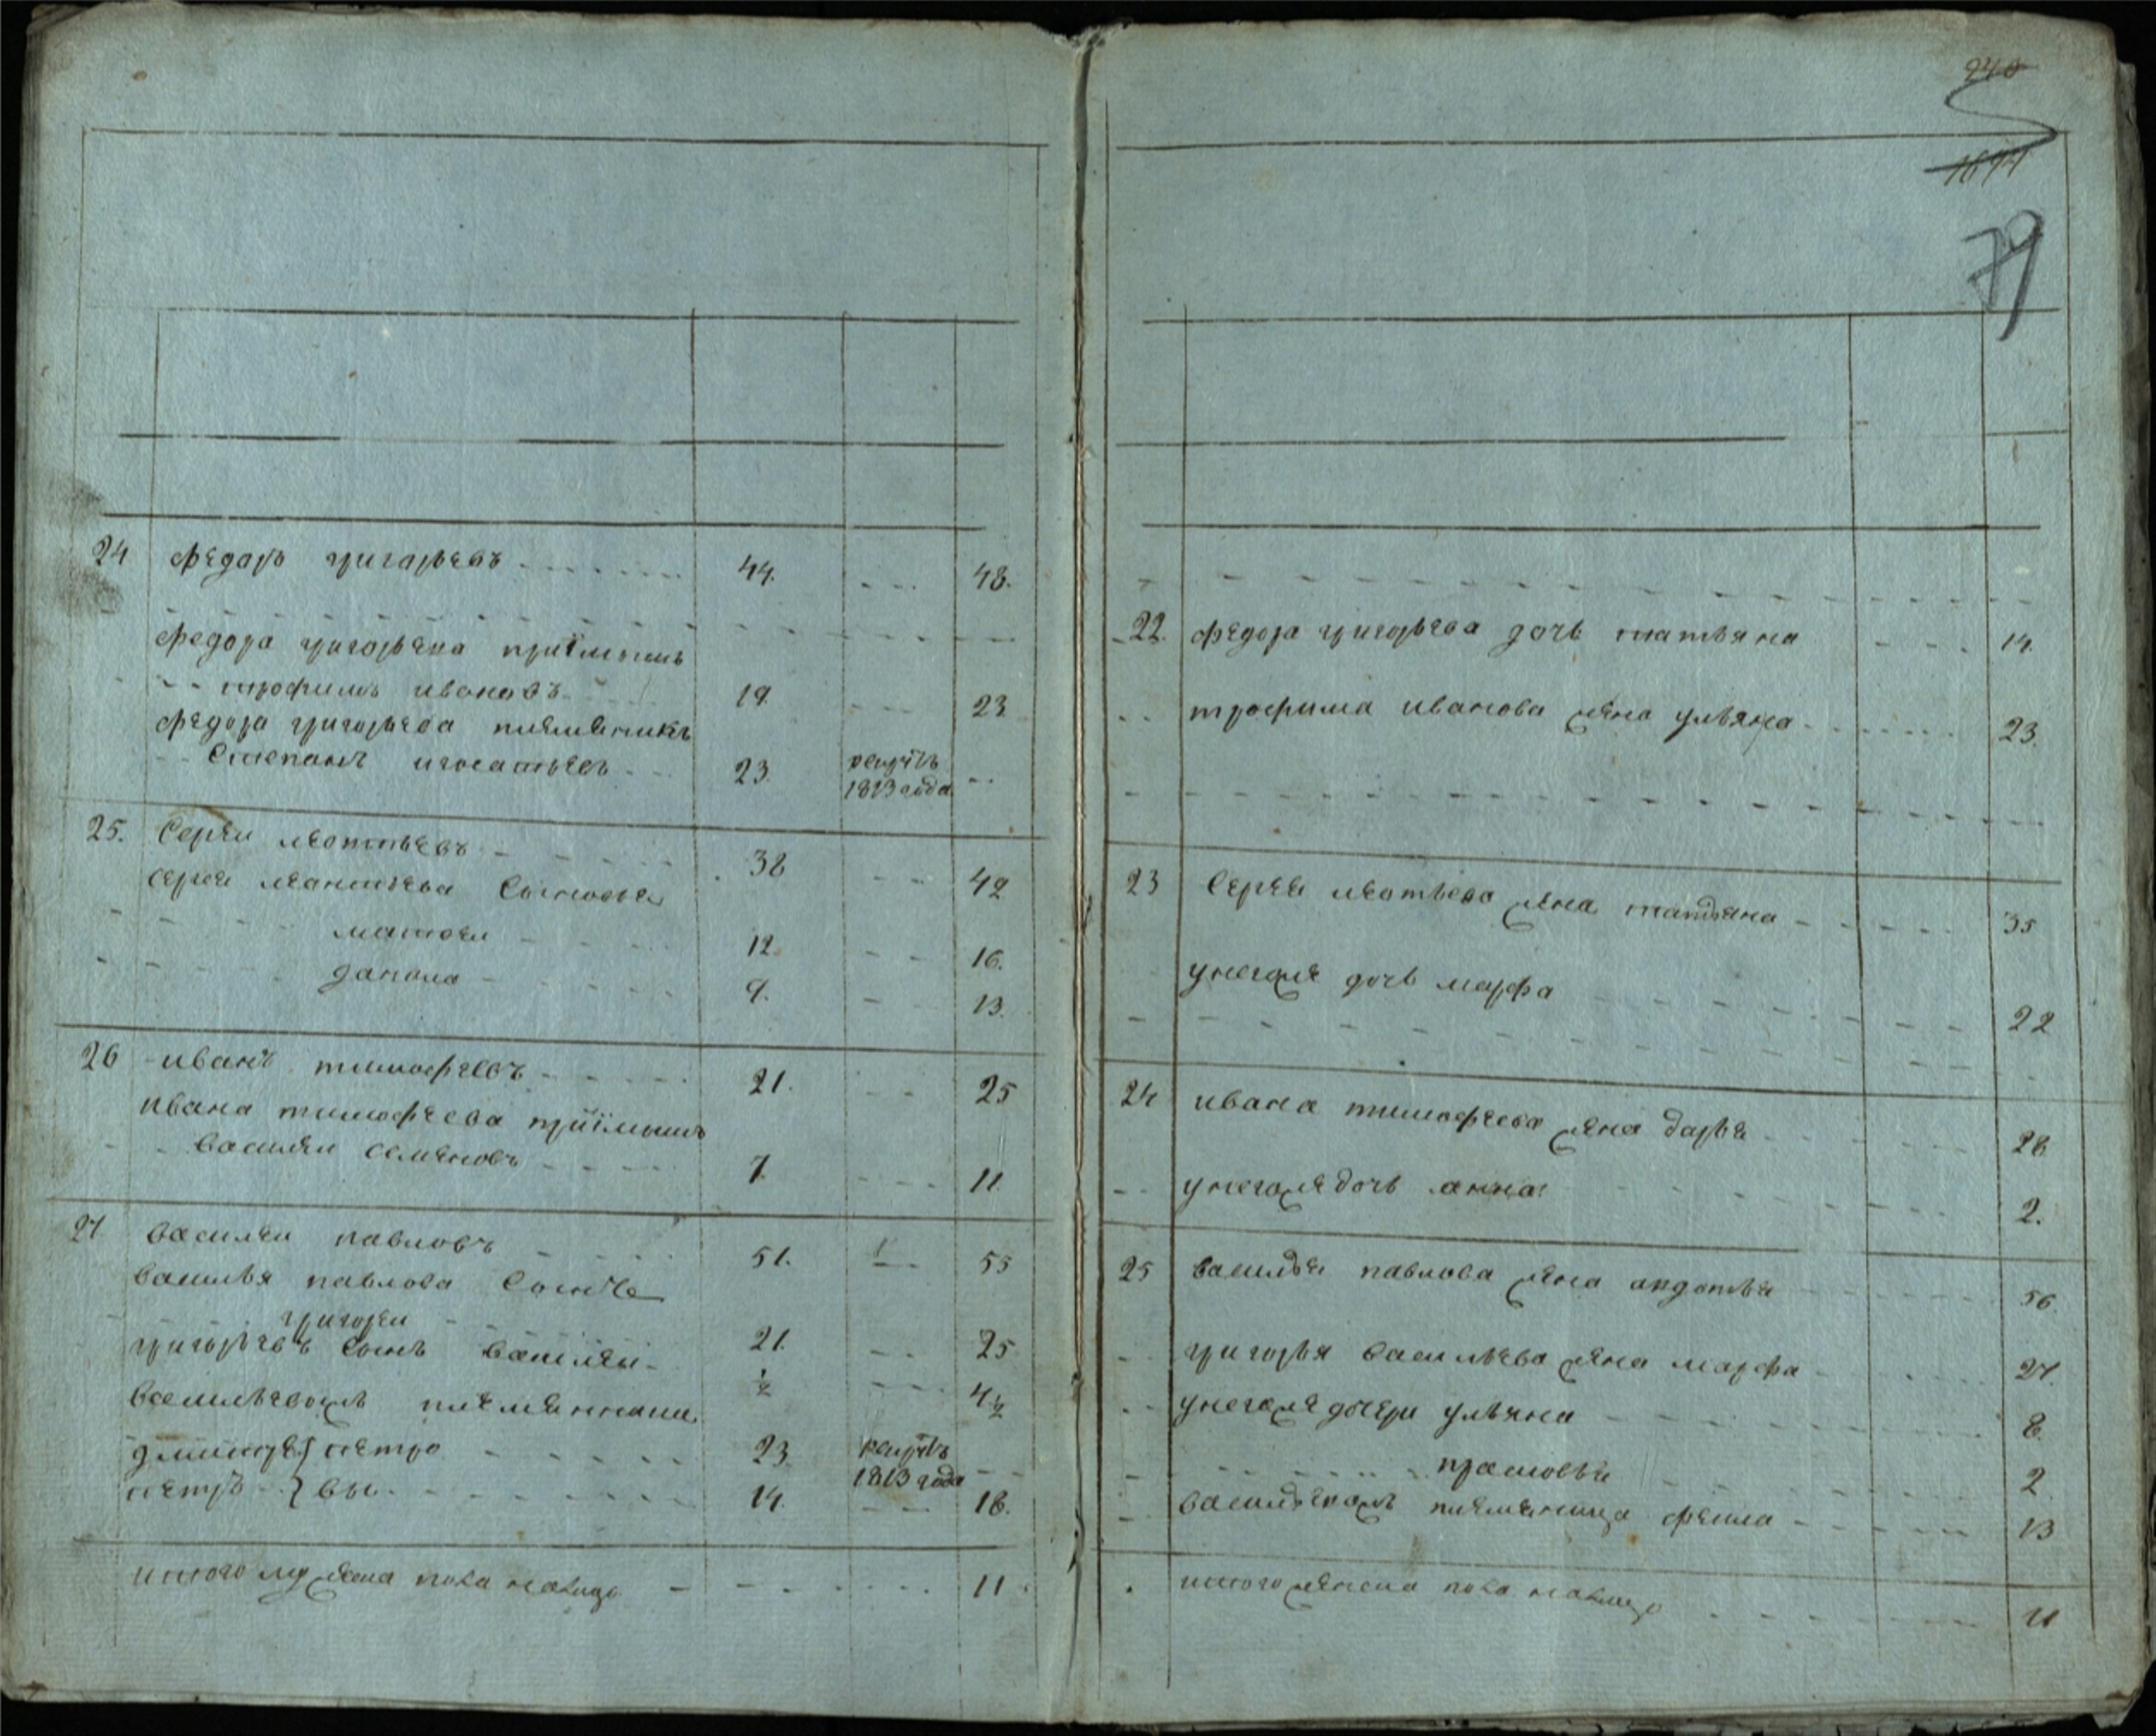 240
1671
79
24 Федаръ григарьевъ 44. 48.
Федора григорьева приимышъ
трофимъ ивановъ 19. 23
Федора григорьева племяникъ
Степанъ игнатьевъ 23. рекрутъ 1813 года
25. Сергеи леонтьевъ 38 42
сергея леонтьева Сыновья
матвеи 12. 16.
данила 9. 13.
26 иванъ тимофеевъ 21. 25
ивана тимофеева приимышъ
Василеи семеновъ 7. 11
27 василеи павловъ 51. 55
василья павлова Сынъ
григореи 21. 25
григорьевъ Сынъ василеи ½ 4½
васильевыхъ племянники
дмитре петро 23 рекрутъ 1813 года
петръ вы 14. 18.
итого мужеска пола налицо 11
22. Федора григорьева дочь татьяна 14.
трофима иванова жена ульяна 23.
23 Сергея леонтьева жена татьяна 35
у негоже дочь марфа 22
24 ивана тимофеева жена дарья 28
у негоже дочь анна 2.
25 василья павлова жена авдотья 56.
григорья васильева жена марфа 27.
у негоже дочери ульяна 8.
прасковья 2
племяница 13
итого женска пола налицо 11